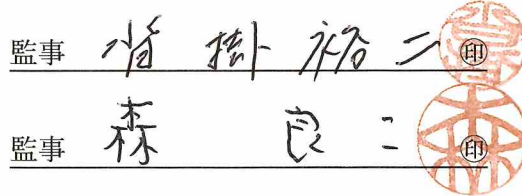 監事 掛 裕二 ㊞
監事 森 良二 ㊞